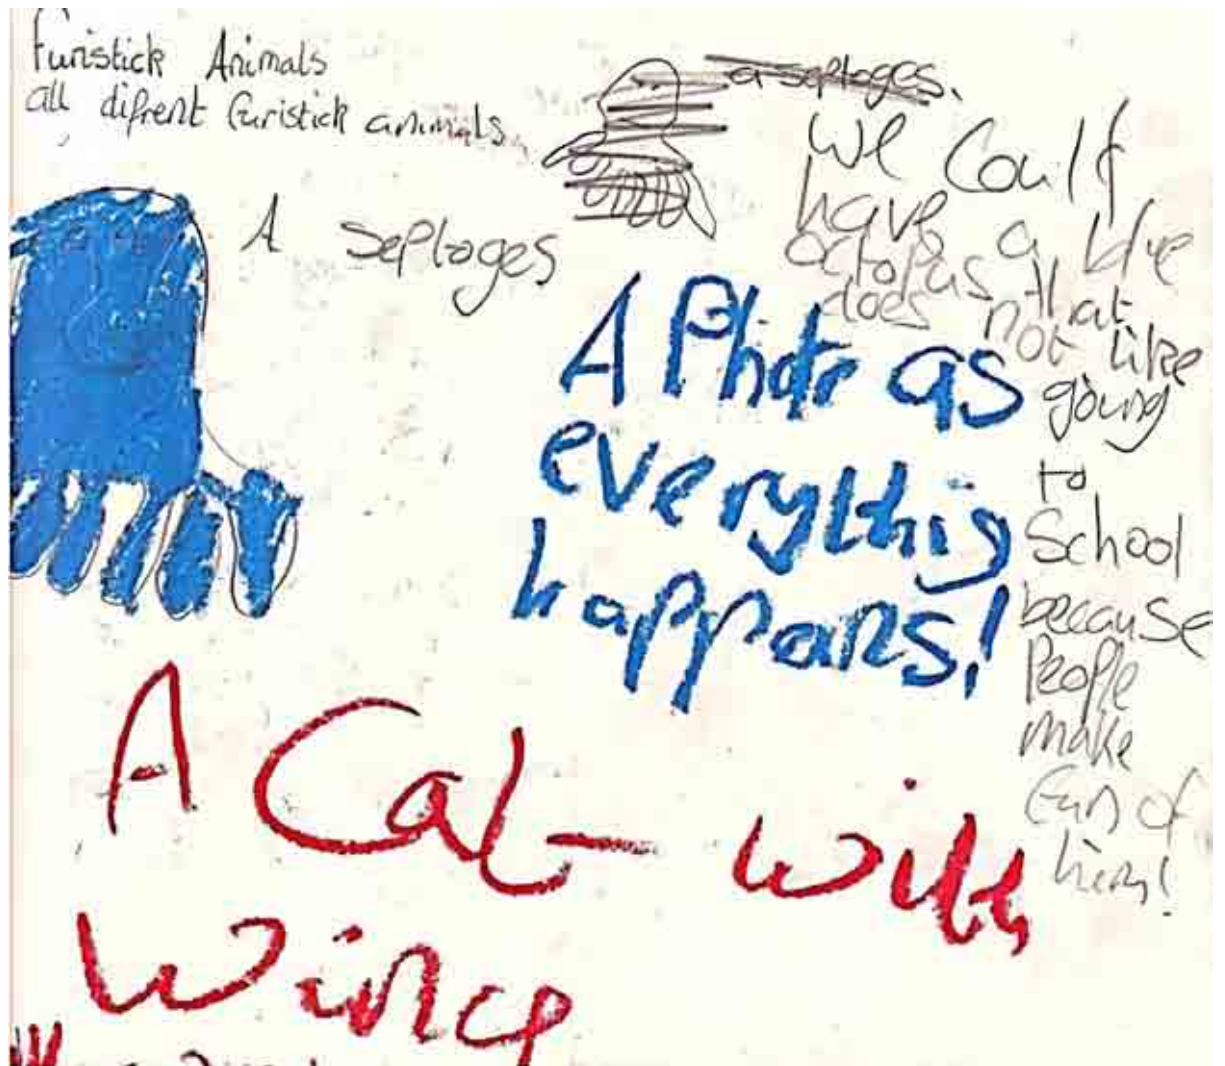 Furistick Animals
all difrent furistick animals
a septoges.
A septoges
We Coulf
have a blue
octopus that
does not like
going
to
School
because
People
make
fun of
him!
A as
everythig
happans!
A Cat with